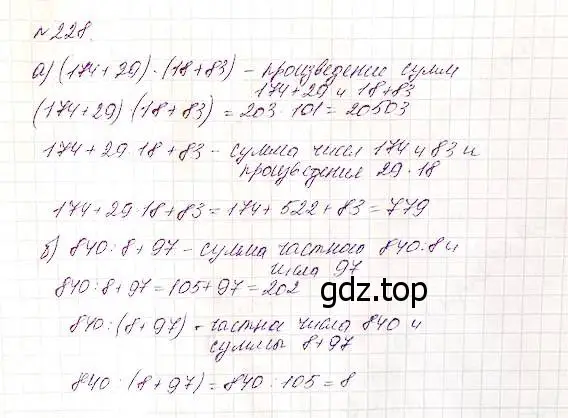 №228.
а) (174+29) · (18+83) – произведение сумм
174+29 и 18+83
(174+29) (18+83) = 203 · 101 = 20503
174+29 · 18+83 – сумма чисел 174 и 83 и
произведения 29 · 18
174+29 · 18+83 = 174+522+83 = 779
б) 840 : 8+97 – сумма частного 840:8 и
числа 97
840 : 8+97 = 105+97 = 202
gdz.top
840 : (8+97) - частное числа 840 и
суммы 8+97
840 : (8+97) = 840 : 105 = 8